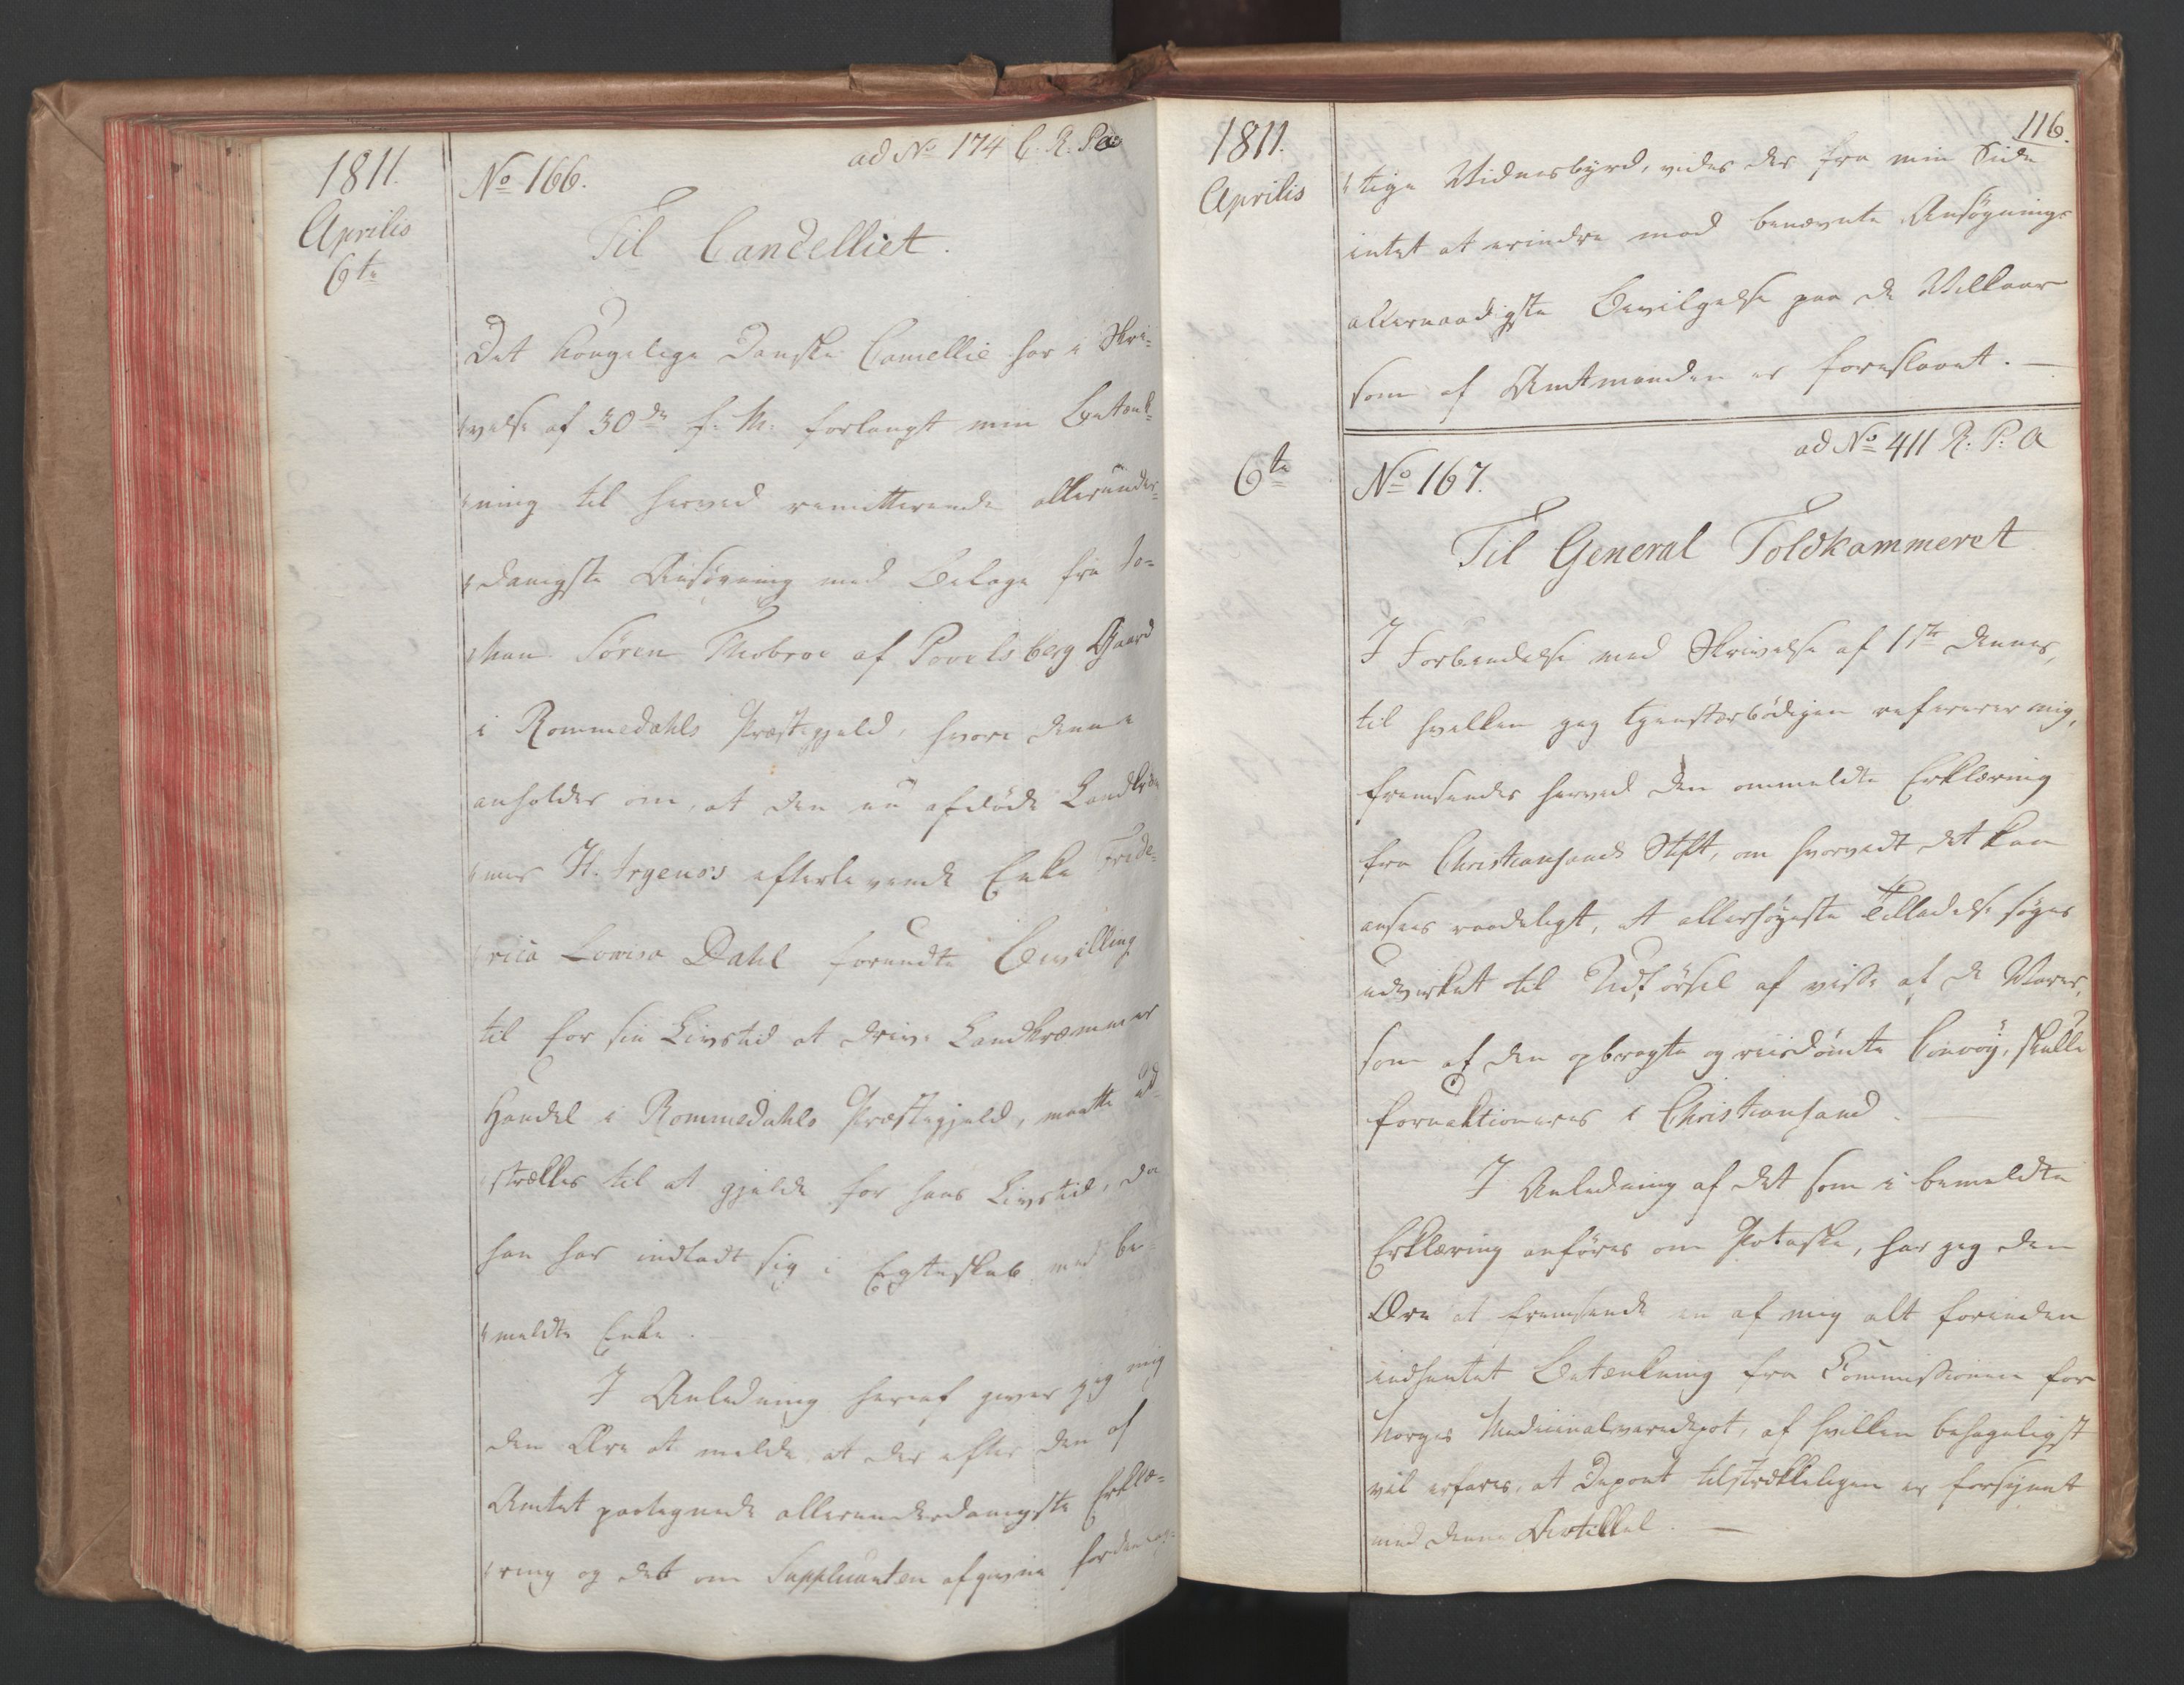 1811.
Aprilis
6te
No 166.
ad No 174 C. R. P. a
Til Cancelliet.
Det Kongelige Danske Cancellie har i Skri-
velse af 30de f: M: forlangt min Betænk-
ning til herved remitterende allerunder-
danigste Ansøgning med Bilage fra Jo-
han Søren Mobroe af Povelsberg Gaard
i Rommedahls Præstegjeld, hvori denne
anholder om, at den nu afdøde Landkræm-
mer H. Irgens's efterlevende Enke Fride-
rica Lovisa Dahl forundte Bevilling
til for sin Livstid at drive Landkræmmer
Handel i Rommedahls Præstegjeld, maatte ud-
strækkes til at gjelde for hans Livstid, da
han har indladt sig i Egteskab med be-
meldte Enke.
I Anledning heraf giver jeg mig
den Ære at melde at der efter den af
Amtet paategnede allerunderdanigste Erklæ-
ring og det om Supplicanten afgivne fordeel-
116.
1811.
Aprilis
tige Vidnesbyrd, vides der fra min Side
intet at erindre mod benævnte Ansøgnings
allernaadigste Bevilgelse paa de Vilkaar
som af Amtmanden er foreslaaet. —
ad No 411 R: P: A
6te
No 167.
Til General Toldkammeret
I Forbindelse med Skrivelse af 1ste dennes,
til hvilken jeg tjenstærbødigen refererer mig,
fremsendes herved den ommeldte Erklæring
fra Christiansands Stift, om hvorvidt det kan
ansees raadeligt, at allerhøyeste Tilladelse søges
udvirket til Udførsel af visse af de Varer,
som af den opbragte og priisdømte Convoy, skulle
forauktioneres i Christiansand.
I Anledning af det som i bemeldte
Erklæring anføres om Potaske, har jeg den
Ære at fremsende en af mig alt forinden
indhentet Betænkning fra Commissionen for
Norges Medicinalvaredepot, af hvilken behageligst
vil erfares, at Depoet tilstrækkeligen er forsynet
med denne Artikkel. —